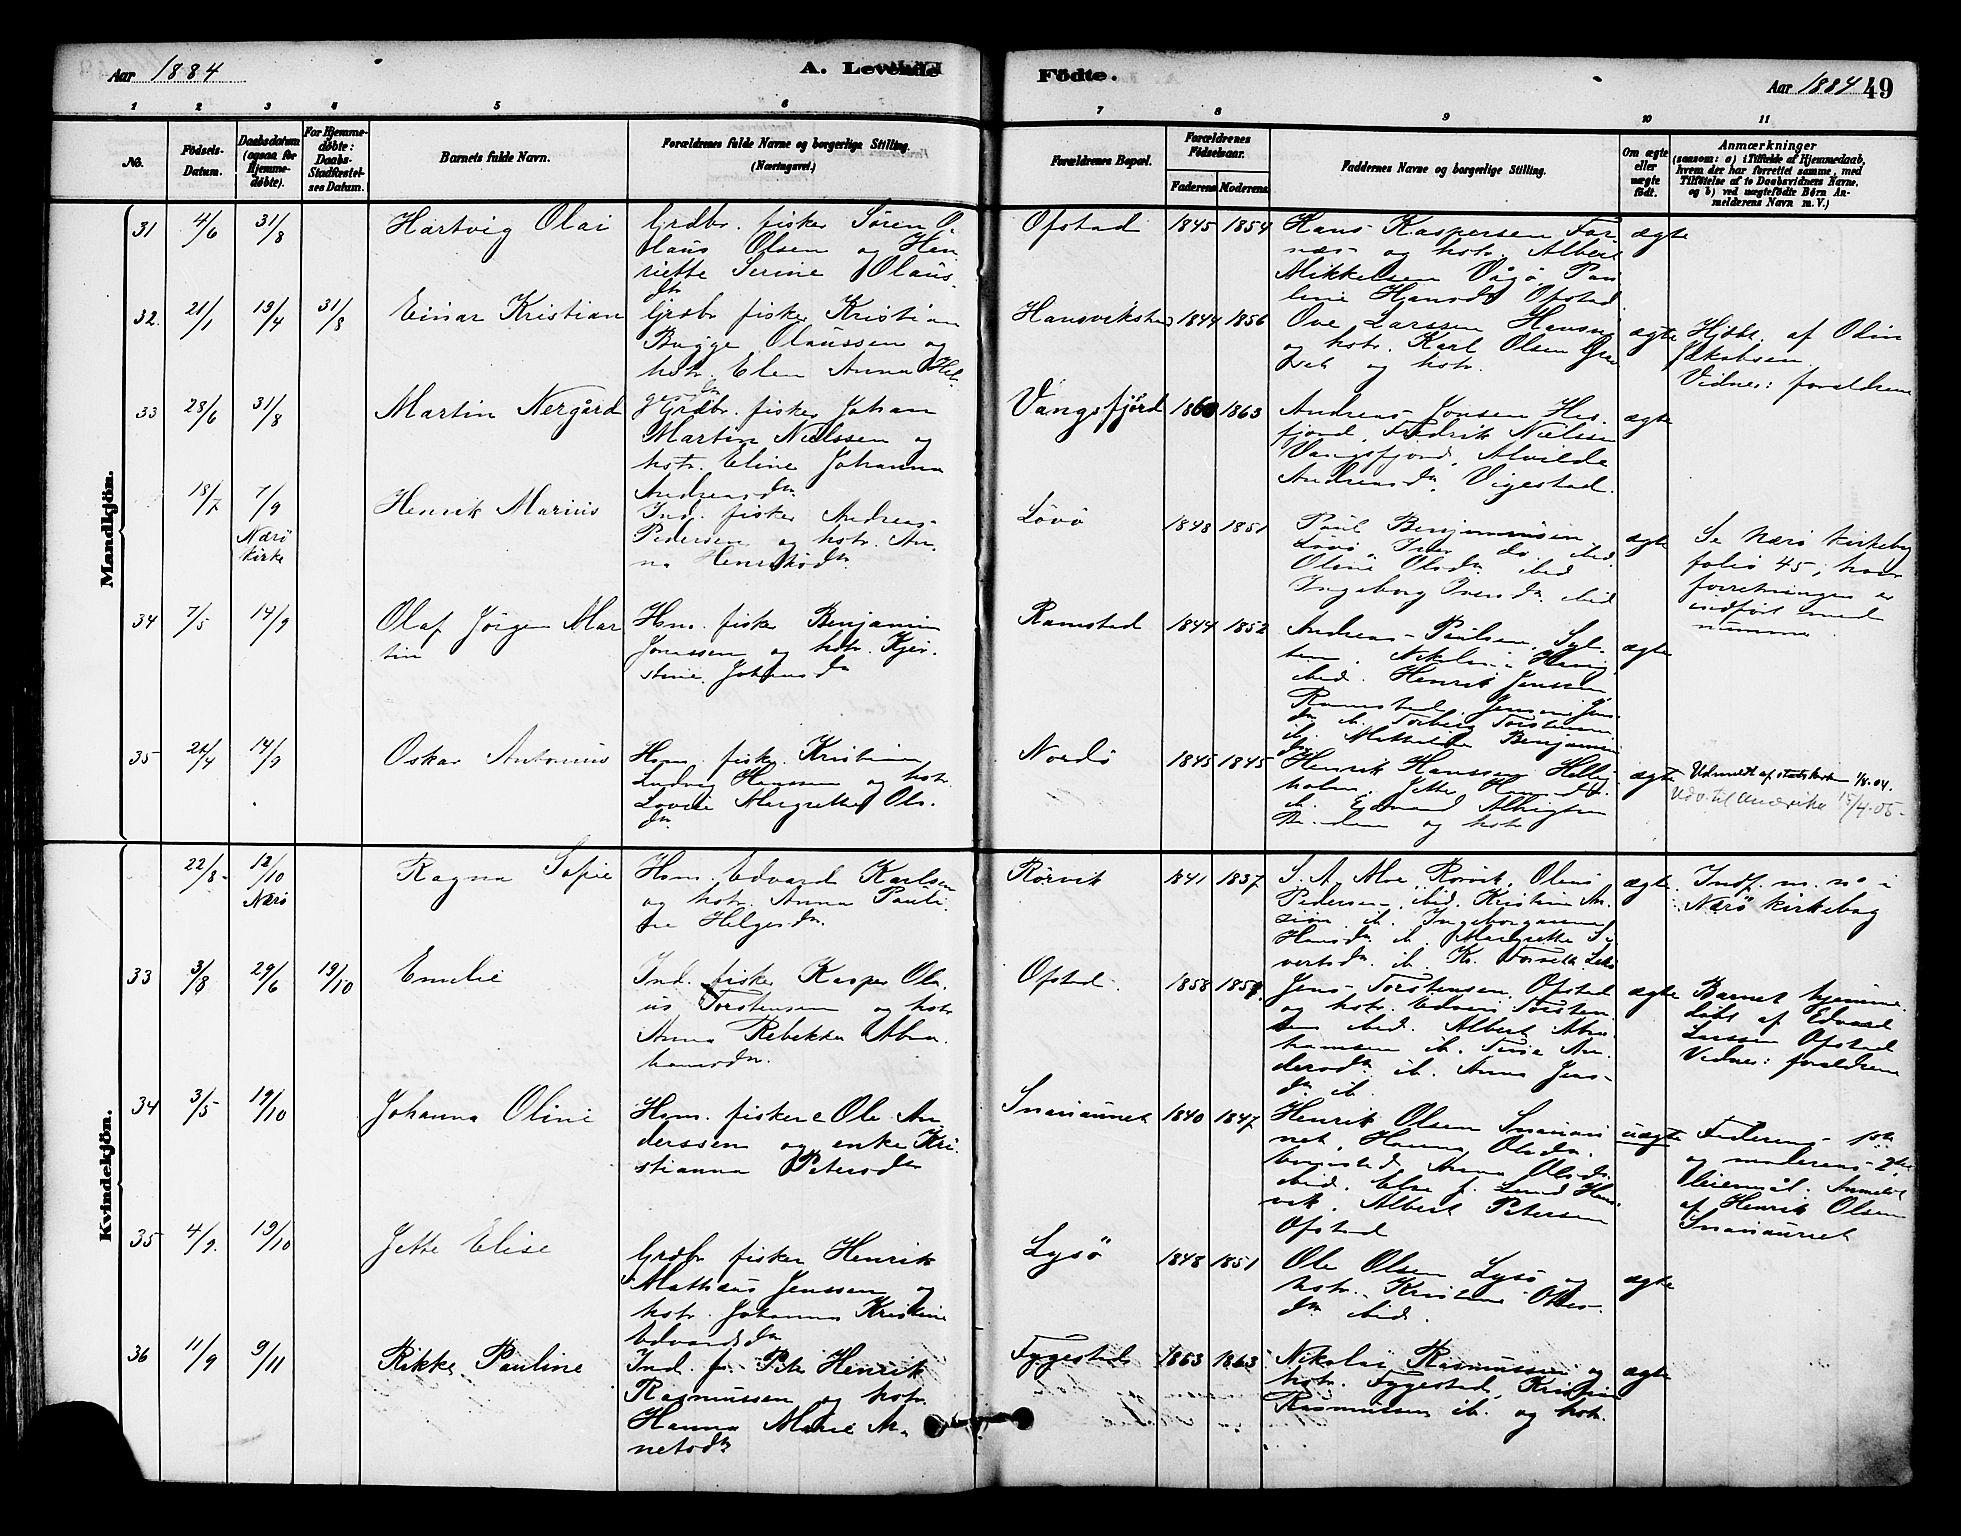 Aar 1884
A. Levende
Födte.
Aar 1884
49
1 2 3 4 5 6 7 8 9 10 11
No.
Födsels-
Datum.
Daabsdatum
(ogsaa for
Hjemme-
døbte).
For Hjemme-
døbte:
Daabs-
Stadfæstel-
ses Datum.
Barnets fulde Navn.
Forældrenes fulde Navne og borgerlige Stilling.
(Næringsvei.)
Forældrenes Bopæl.
Forældrenes
Födselsaar.
Faderens
Moderens
Faddernes Navne og borgerlige Stilling.
Om ægte
eller
uægte
født.
Anmærkninger
(saasom: a) i Tilfælde af Hjemmedaab,
hvem der har forrettet samme, med
Tilføielse af to Daabsvidners Navne,
og b) ved uægtefødte Børn An-
melderens Navn m. V.)
Mandkjön.
31 4/6 31/8
Hartvig Olai
Grdbr. fisker Søren O-
laus Olsen og Hen
riette Serine Olaus-
dtr
Ofstad 1845 1854
Hans Kaspersen For
næs og hstr. Albert
Mikkelsen Vågø, Pau
line Hansdr Ofstad
ægte
32. 21/1 13/4 31/8
Einar Kristian
Grdbr fisker Kristian
Bugge Olaussen og
hstr. Elen Anna Hel-
Hansvik 1844 1856
Ove Larssen Hansvig
og hstr. Karl Olsen
og hstr.
ægte
Hjdbt. af Odin
Jakobsen
Vidner: forældrene
33 28/6 31/8
Martin Nergård
Grdbr. fisker Johan
Martin Nielssen og
hstr. Eline Johanna
Andreasdtr.
Vangsfjord 1860 1863
Andreas Jonsen
Fredrik Nielsen
Vangsfjord, Alvilde
Andreasdr, Vigestad.
ægte
18/7 7/9
Nærö
kirke
Henrik Marius
Ind. fisker Andreas
Pedersen og hstr. An-
na Henriksdr.
Lövö 1848 1851
Paul Benjaminsen
Lövö, Iver do. ibid.
Oline Olsdr. ibid
Ingeborg Iversdr. ibid
ægte
Se Nærö kirkebog
folio 45, hvor
forretningen er
indført med
nummer.
34 7/5 14/9
Olaf Jörgen Mar
tin
Hsm. fisker Benjamin
Jonassen og hstr. Kjer-
stine Johansdr
Ramstad 1844 1852
Andreas Paulsen, Syl-
ten, Nikolai
ibid. Henrik Jenssen
Ramstad,
ægte
35 4 14/9
Oskar Antonius
Hsm. fisker Kristian
Ludvig Hanssen og hstr
Lovise Margrethe Ols-
dr
Nordö 1845 1845
Henrik Hanssen
holm, Jette
og hstr
ægte
Udmeldt af statskirken 1/8.04.
Udv. til Amerika 15/4.05-
Kvindekjön.
22/8 12/10
Nærö
Ragna Sofie
Hsm. Edvard Karlsen
og hstr. Anna Pauli-
ne Helgesdr.
Rörvik 1841 1837
S. A. Moe, Rörvik, Olaus
Pedersen, ibid, Kristine
ib. Ingeborganna
Hansdr ib, Margrethe Si-
vertsdr. ib.
ægte
Indf. m. no i
Nærö kirkebog
33 3/8 29/6 19/10
Emelie
Ind. fisker Kasper Ola-
us Torstensen og hstr
Anna Rebekka Abra-
hamsdr.
Ofstad 1858
Jens Torstensen, Ofstad
og hstr. Edvin Torsten
sen ibid. Albert Abra-
hamsen ib.
dersdr ib. Anna Jens-
dr ib.
ægte
Barnet hjemme-
døbt af Edvard
Larssen Ofstad
Vidner: forældrene
34 3/5 19/10
Johanna Oline
Hsm. fisker Ole An
derssen og enke Kri-
stianna Petersdr
Snausaunet 1840 1847
Henrik Olsen
Hanna Olsdr.
Anna Olsdr
ibid. Else
Albert Petersen
Ofstad
uægte
Faderens 1ste
og moderens 2det
leiermål. Anmeldt
af Henrik Olsen
35 4/9. 19/10
Jette Elise
Grdbr fisker Henrik
Mathæus Jenssen og
hstr. Johanna Kristine
Edvardsdr
Lysö 1848 1851
Ole Olsen Lysö og
hstr. Kristine Ols-
dr ibid.
ægte
36 11/9 9/11
Rikke Pauline
Ind. fi. Peter Henrik
Rasmussen og hstr.
Hanna Marie A-
Fygestad 1863 1863
Nikolai Rasmussen og
hstr. Fygestad, Kristian
Rasmussen ib. og hstr.
ægte